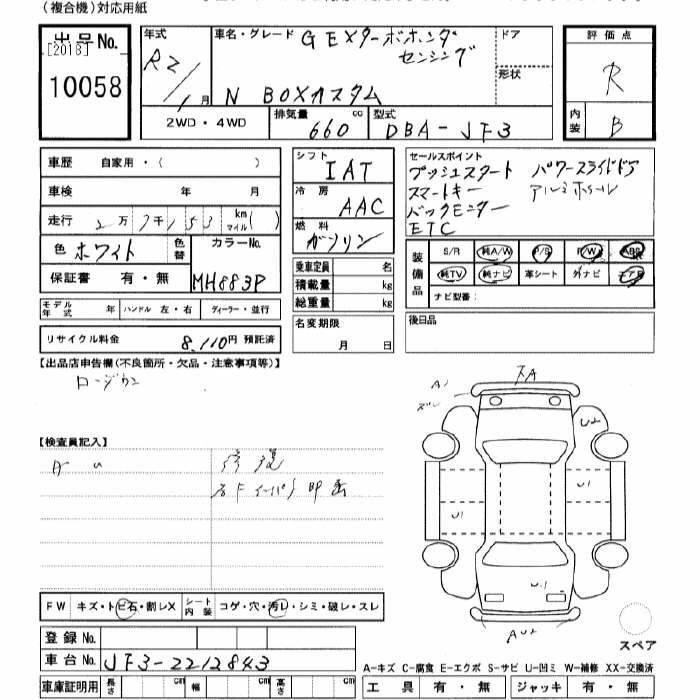 (複合機)対応用紙
出品No.
[2018]
10058
年式
R2/1月
車名・グレード
G EXターボホンダ
センシング
N BOXカスタム
ドア
形状
評価点
R
内装
B
2WD・4WD
排気量
660 cc
型式
DBA-JF3
車歴 自家用・( )
車検 年 月
走行 2万7千153 km マイル( )
色 ホワイト
色替
カラーNo.
MH883P
保証書 有・無
モデル年式
ハンドル 左・右
ディーラー・並行
リサイクル料金 8,110円 預託済
シフト
IAT
冷房
AAC
燃料
ガソリン
乗車定員 名
積載量 kg
総重量 kg
名変期限
月 日
セールスポイント
プッシュスタート パワースライドドア
スマートキー アルミホイール
バックモニター
ETC
装備品
S/R 純A/W P/S P/W ABS
純TV 純ナビ 革シート 外ナビ エアB
ナビ型番:
後日品
【出品店申告欄(不良箇所・欠品・注意事項等)】
ローダウン
【検査員記入】
修復
FW キズ・トビ石・割レX
シート内装 コゲ・穴・汚レ・シミ・破レ・スレ
登録No.
車台No. JF3-2212843
車庫証明用 長さ cm 幅 cm 高さ cm
A1
U2
U1
U1
U1
AU2
スペア
A-キズ C-腐食 E-エクボ S-サビ U-凹ミ W-補修 XX-交換済
工具 有・無 ジャッキ 有・無